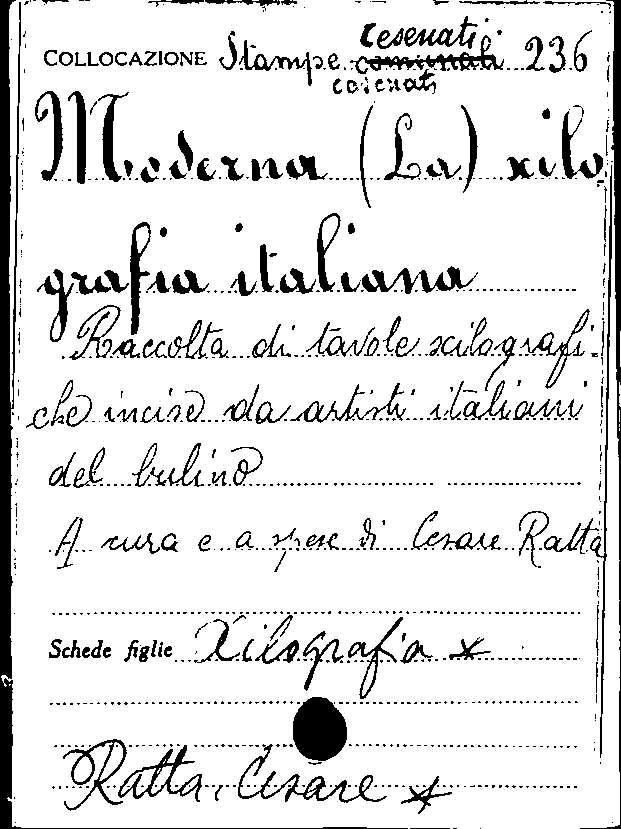 cesenati
COLLOCAZIONE Stampe comunali 236
cesenati
Moderna (La) xilo
grafia italiana
Raccolta di tavole xilografi-
che incise da artisti italiani
del bulino
A cura e a spese di Cesare Ratta
Schede figlie Xilografia x
Ratta, Cesare x